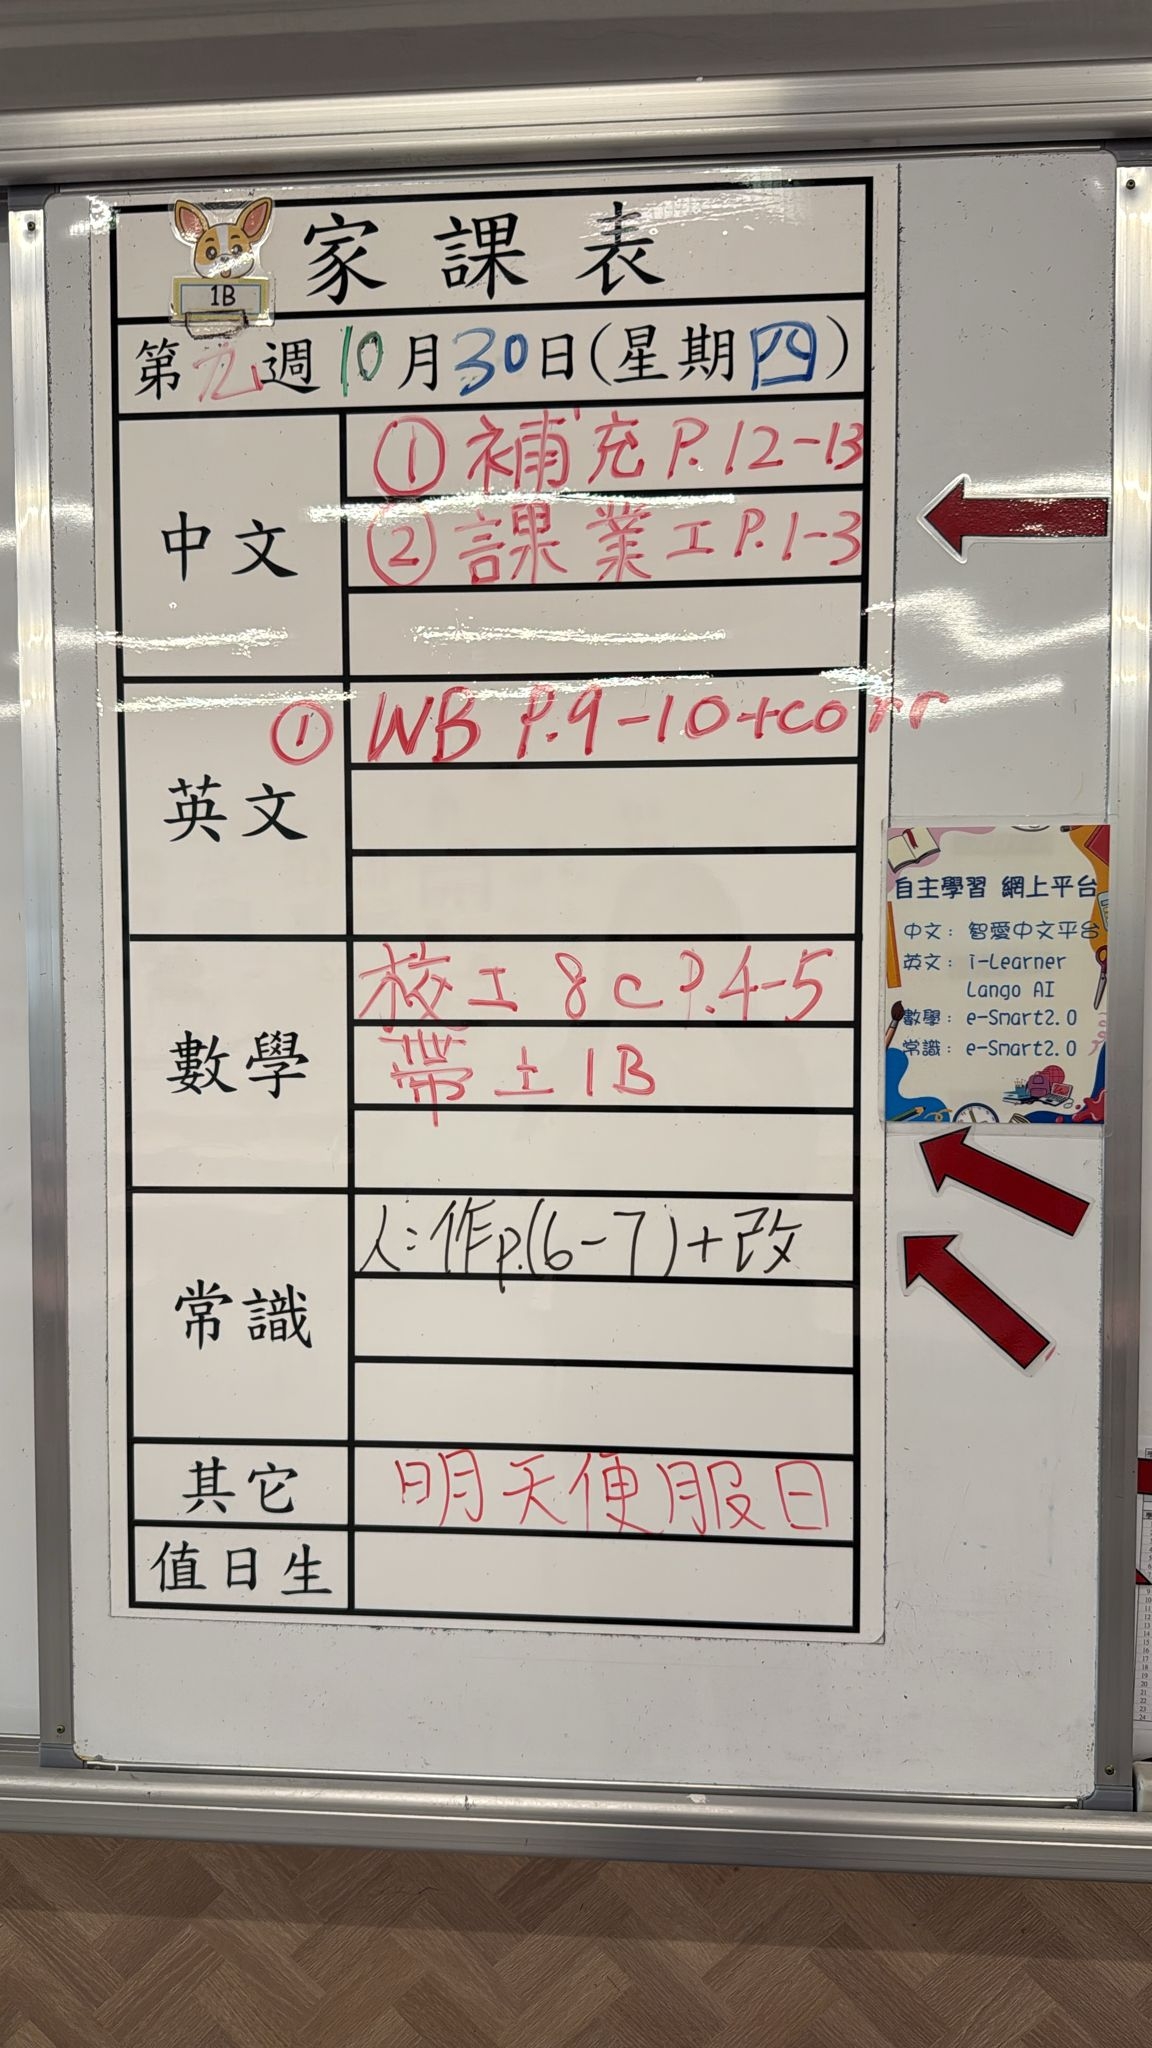 家課表
1B
第九週10月30日(星期四)
中文
① 補充 P.12-13
② 課業工 P.1-3
英文
① WB P.9-10+corr
數學
校工 8C P.4-5
帶上1B
常識
人:作p.(6-7)+改
其它
明天便服日
值日生
自主學習 網上平台
中文：智愛中文平台
英文：i-Learner
Lango AI
數學：e-Smart2.0
常識：e-Smart2.0